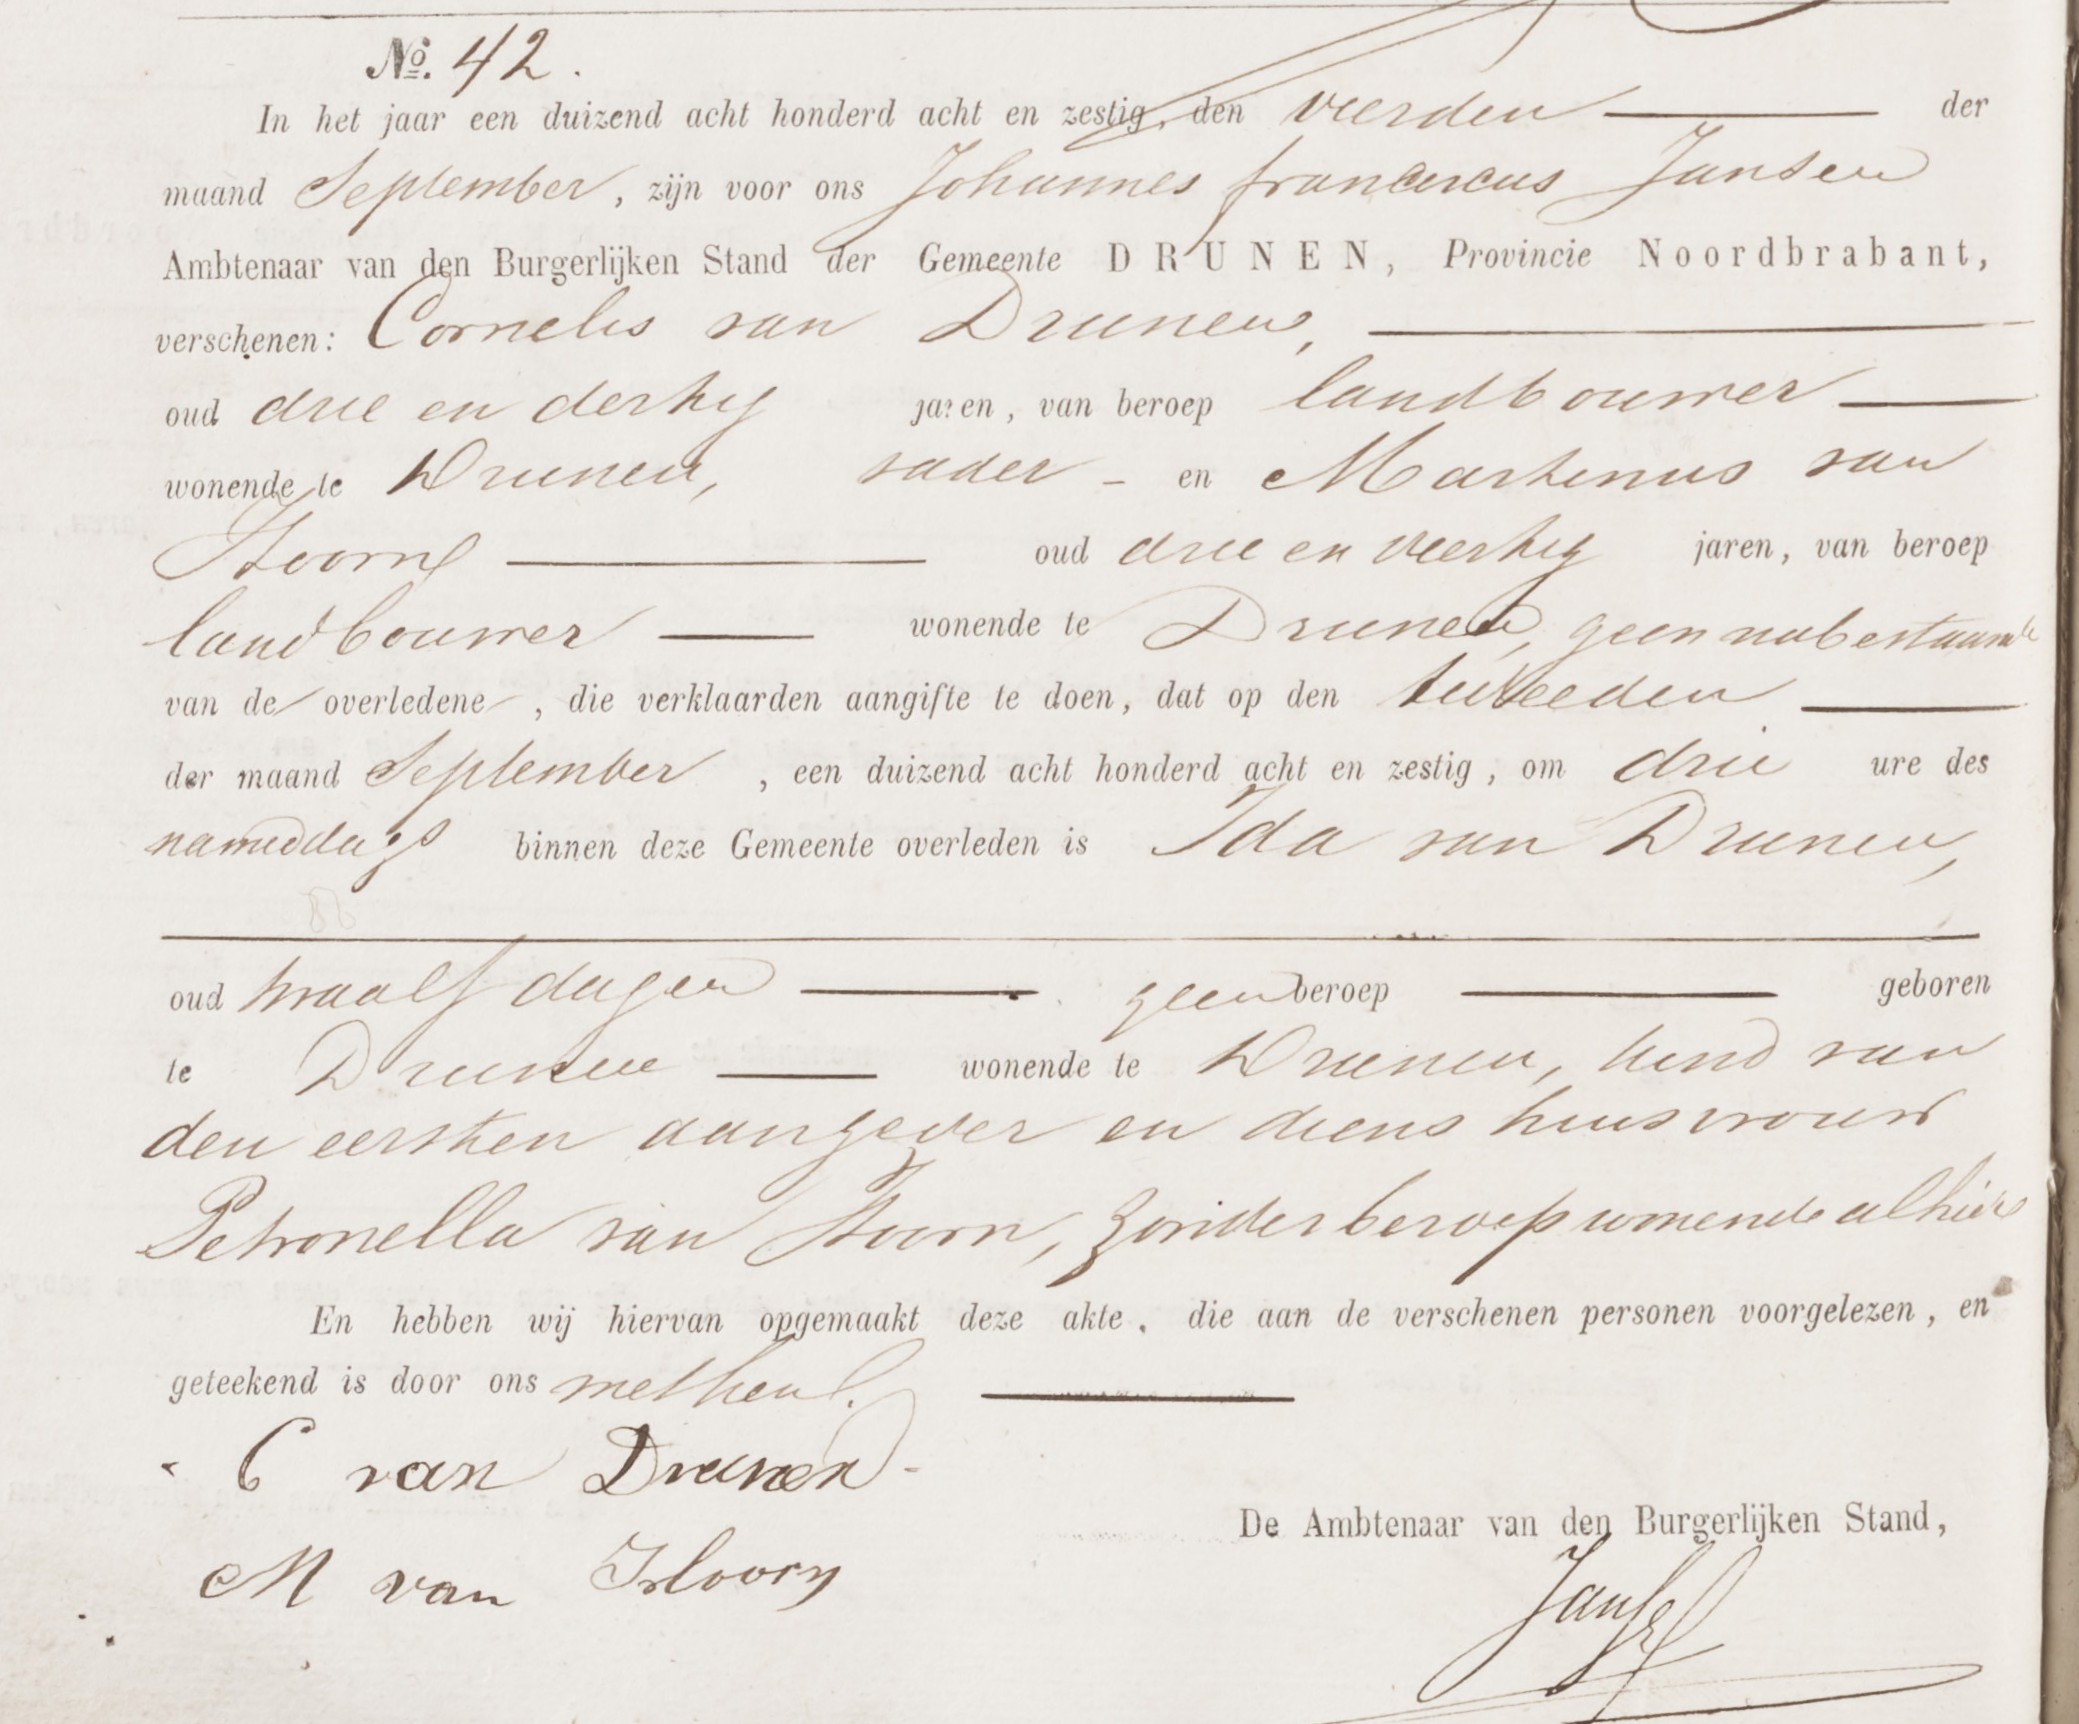 No. 42.
In het jaar een duizend acht honderd acht en zestig, den vierden der
maand September, zijn voor ons Johannes franciscus Jansen
Ambtenaar van den Burgerlijken Stand der Gemeente DRUNEN, Provincie Noordbrabant,
verschenen: Cornelis van Drunen,
oud drie en dertig jaren, van beroep landbouwer
wonende te Drunen, vader - en Martinus van
Hoorn oud drie en veertig jaren, van beroep
landbouwer wonende te Drunen, geen nabestaande
van de overledene, die verklaarden aangifte te doen, dat op den tweeden
der maand September, een duizend acht honderd acht en zestig, om drie ure des
namiddags binnen deze Gemeente overleden is Ida van Drunen,
oud twaalf dagen geen beroep geboren
te Drunen wonende te Drunen, kind van
den eersten aangever en diens huisvrouw
Petronella van Hoorn, zonder beroep wonende alhier
En hebben wij hiervan opgemaakt deze akte, die aan de verschenen personen voorgelezen, en
geteekend is door ons met hen.
C van Drunen
M van Hoorn
De Ambtenaar van den Burgerlijken Stand,
Jansen